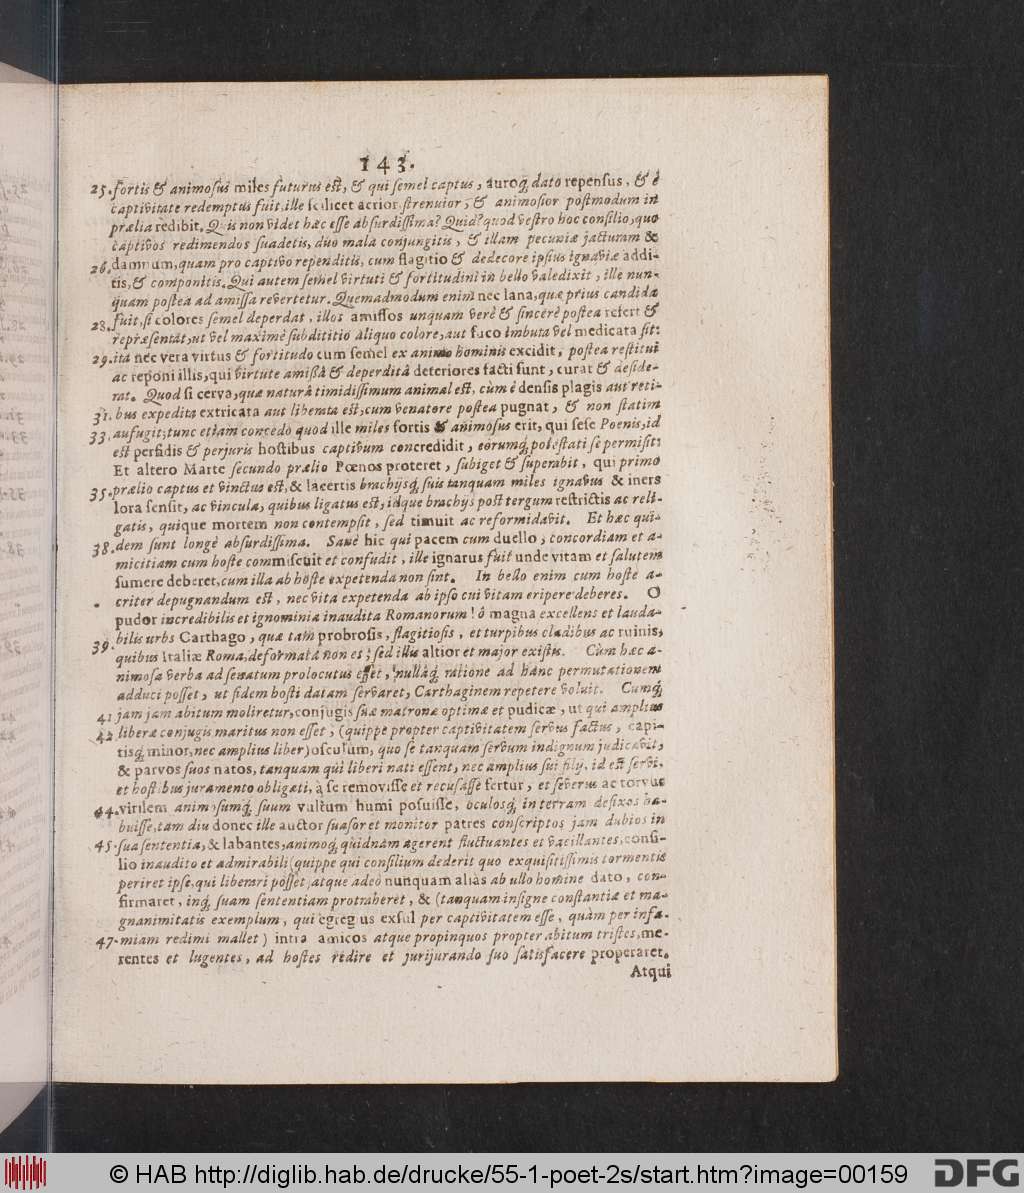 143.
25. fortis & animosus miles futurus est, & qui semel captus, auroq́ dato repensus, & è
captivitate redemptus fuit, ille scilicet acrior, strenuior, & animosior postmodum in
prælia redibit. Quis non videt hæc esse absurdissima? Quid? quod vestro hoc consilio, quo
captivos redimendos suadetis, duo mala conjungitis, & illam pecuniæ jacturam &
26. damnum, quam pro captivo rependitis, cum flagitio & dedecore ipsius ignaviæ addi-
tis, & componitis. Qui autem semel virtuti & fortitudini in bello valedixit, ille nun-
quam postea ad amissa revertetur. Quemadmodum enim nec lana, quæ prius candida
28. fuit, si colores semel deperdat, illos amissos unquam verè & sincerè postea refert &
repræsentat, ut vel maximè subdititio aliquo colore, aut fuco imbuta vel medicata sit:
29. ita nec vera virtus & fortitudo cum semel ex animo hominis excidit, postea restitui
ac reponi illis, qui virtute amißâ & deperditâ deteriores facti sunt, curat & deside-
rat. Quod si cerva, quæ naturâ timidissimum animal est, cùm è densis plagis aut reti-
31. bus expedita extricata aut liberata est, cum venatore postea pugnat, & non statim
33. aufugit; tunc etiam concedo quod ille miles fortis & animosus erit, qui sese Pœnis, id
est perfidis & perjuris hostibus captivum concredidit, eorumq́ potestati se permisit:
Et altero Marte secundo prælio Pœnos proteret, subiget & superabit, qui primo
35. prælio captus et vinctus est, & lacertis brachijsq́ suis tanquam miles ignavus & iners
lora sensit, ac vincula, quibus ligatus est, idque brachijs post tergum restrictis ac reli-
gatis, quique mortem non contempsit, sed timuit ac reformidavit. Et hæc qui-
38. dem sunt longè absurdissima. Sanè hic qui pacem cum duello, concordiam et a-
micitiam cum hoste commiscuit et confudit, ille ignarus fuit unde vitam et salutem
sumere deberet, cum illa ab hoste expetenda non sint. In bello enim cum hoste a-
criter depugnandum est, nec vita expetenda ab ipso cui vitam eripere deberes. O
pudor incredibilis et ignominia inaudita Romanorum! ô magna excellens et lauda-
39. bilis urbs Carthago, quæ tam probrosis, flagitiosis, et turpibus cladibus ac ruinis,
quibus Italiæ Roma, deformata non es; sed illis altior et major existis. Cùm hæc a-
nimosa verba ad senatum prolocutus esset, nullaq́ ratione ad hanc permutationem
adduci posset, ut fidem hosti datam servaret, Carthaginem repetere voluit. Cumq́
41 jam jam abitum moliretur, conjugis suæ matronæ optimæ et pudicæ, ut qui amplius
42 liberæ conjugis maritus non esset, (quippe propter captivitatem servus factus, capi-
tisq́ minor, nec amplius liber) osculum, quo se tanquam servum indignum judicavit,
& parvos suos natos, tanquam qui liberi nati essent, nec amplius sui filij, id est servi,
et hostibus juramento obligati, à se removisse et recusâsse fertur, et severus ac torvus
44. virilem animosumq́, suum vultum humi posuisse, oculosq́ in terram defixos ha-
buisse, tam diu donec ille auctor suasor et monitor patres conscriptos jam dubios in
45. sua sententia, & labantes, animoq́ quidnam agerent fluctuantes et vacillantes, consi-
lio inaudito et admirabili (quippe qui consilium dederit quo exquisitissimis tormentis
periret ipse, qui liberari posset) atque adeò nunquam alias ab ullo homine dato, con-
firmaret, inq́ suam sententiam protraheret, & (tanquam insigne constantiæ et ma-
gnanimitatis exemplum, qui egregius exsul per captivitatem esse, quàm per infa-
47. miam redimi mallet) intra amicos atque propinquos propter abitum tristes, mœ-
rentes et lugentes, ad hostes redire et jurijurando suo satisfacere properaret.
Atqui
© HAB http://diglib.hab.de/drucke/55-1-poet-2s/start.htm?image=00159
DFG